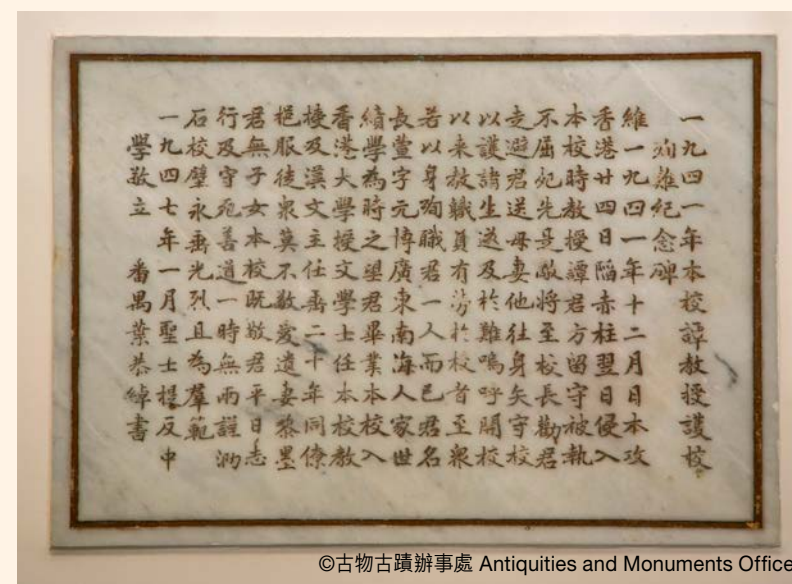 一九四一年本校譚教授護校
殉難紀念碑
維一九四一年十二月日本攻
香港廿四日陷赤柱翌日侵入
本校時教授譚君方留守被執
不屈死先是敵將至校長勸君
走避君送母妻他往身矢守校
以護諸生遂及於難嗚呼開校
以来教職員有勞於校者至衆
若以身殉職君一人而已君名
長萱字元博廣東南海人家世
績學為時之望君畢業本校入
香港大學授文學士任本校教
授及漢文主任垂二十年同僚
挹服徒衆莫不敬愛遺妻黎墨
君無子女本校既敬君平日志
行及守死善道一時無兩謹泐
石校壁永垂光烈且為羣範
一九四七年一月聖士提反中
學敬立 番禺葉恭綽書
©古物古蹟辦事處 Antiquities and Monuments Office